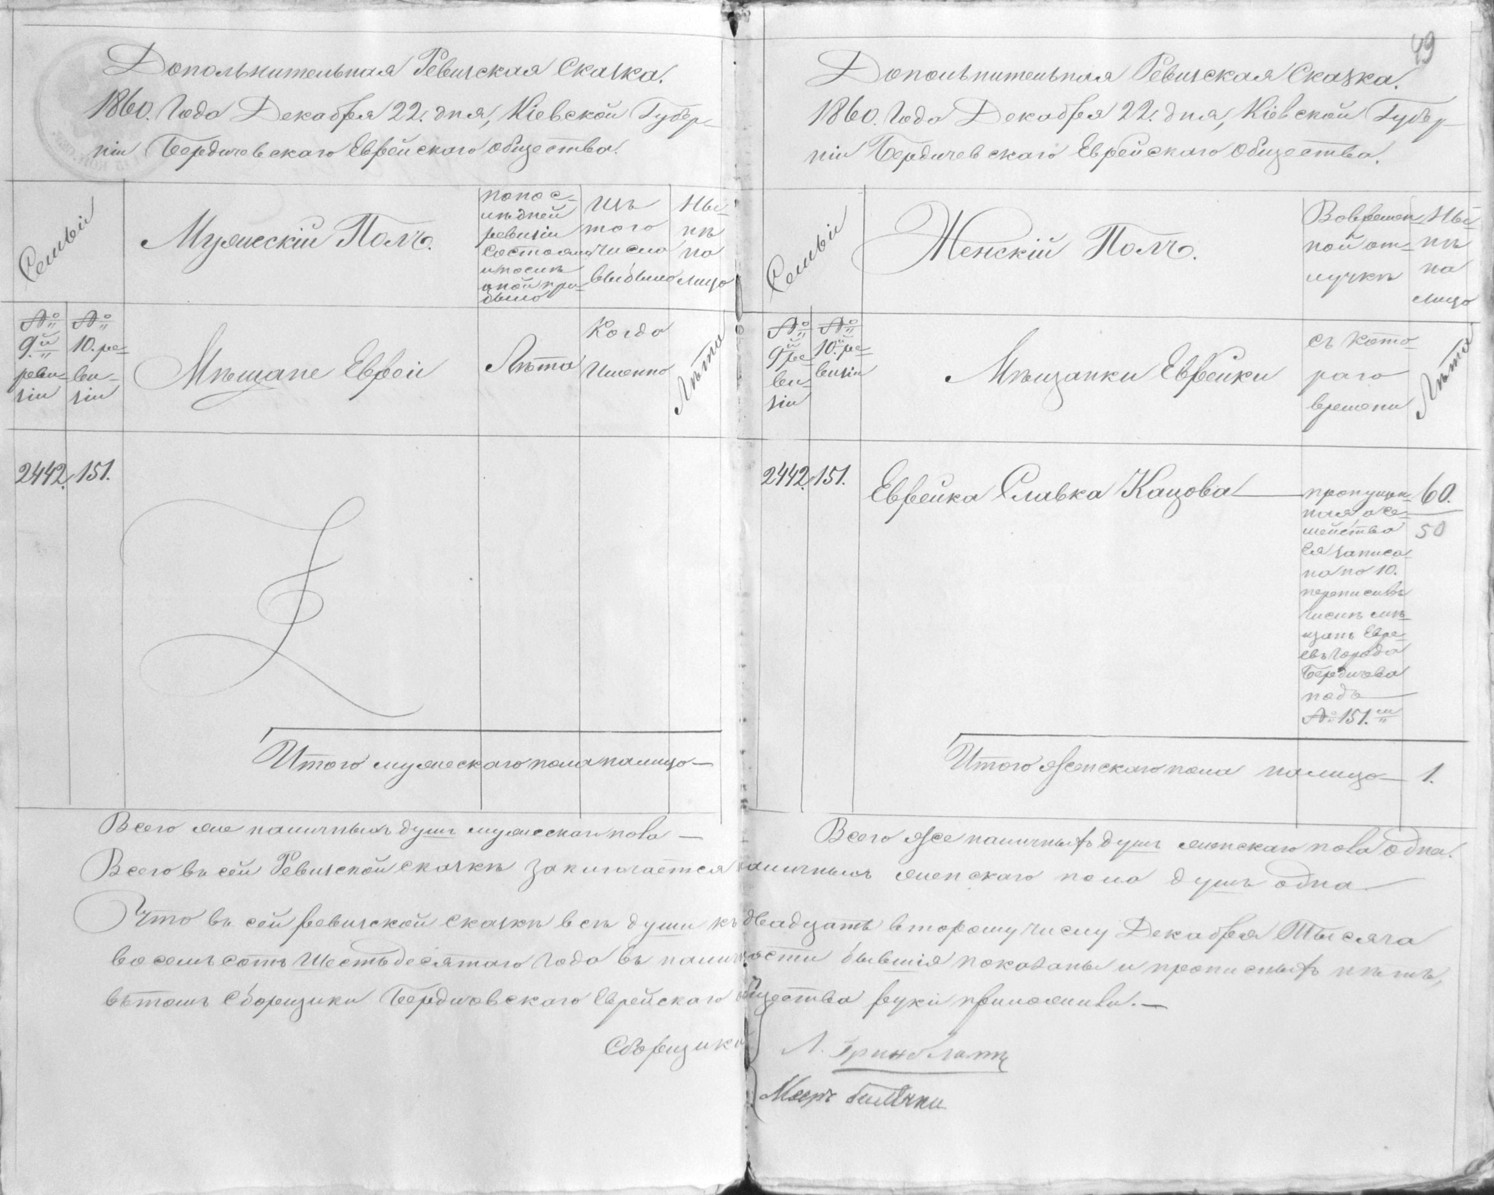 Дополнительная Ревизская Сказка.
1860. Года Декабря 22. дня, Кіевской Губер-
ніи Бердичевскаго Еврейскаго Общества.
Семьи
Мужескій Полъ.
по по с-
лѣдней
ревизіи
состояло
и послѣ
оной при-
было
Изъ
того
числа
выбыло
Ны-
нѣ
на
лицо
№
9й
реви-
зіи
№
10. ре-
ви-
зіи
Мѣщане Евреи
Лѣта
Когда
Именно
Лѣта
2442. 151.
Итого мужескаго пола налицо —
Всего же наличныхъ душъ мужескаго пола —
49
Дополнительная Ревизская Сказка.
1860. Года Декабря 22. дня, Кіевской Губер-
ніи Бердичевскаго Еврейскаго Общества.
Семьи
Женскій Полъ.
Во времен-
ной от-
лучкѣ
Ны-
нѣ
на
лицо
№
9й ре-
ви-
зіи
№
10й ре-
визіи
Мѣщанки Еврейки
съ кото-
раго
времени
Лѣта
2442. 151.
Еврейка Славка Кацова
пропущен-
ная а се-
мейство
ея записа-
но по 10.
переписи въ
числѣ мѣ-
щанъ Евре-
евъ города
Бердичева
подъ
№ 151.мъ
60.
50
Итого женскаго пола налицо — 1.
Всего же наличныхъ душъ женскаго пола одна.
Всего въ сей Ревизской сказкѣ заключается наличныхъ женскаго пола душъ одна
Что въ сей ревизской сказкѣ всѣ души къ двадцать второму числу Декабря Тысяча
восемьсотъ Шестьдесятаго Года въ наличности бывшія показаны и прописныхъ нѣтъ,
въ томъ Сборщики Бердичевскаго Еврейскаго общества руки приложили. —
Сборщики
Л. Гринблатъ
Мееръ